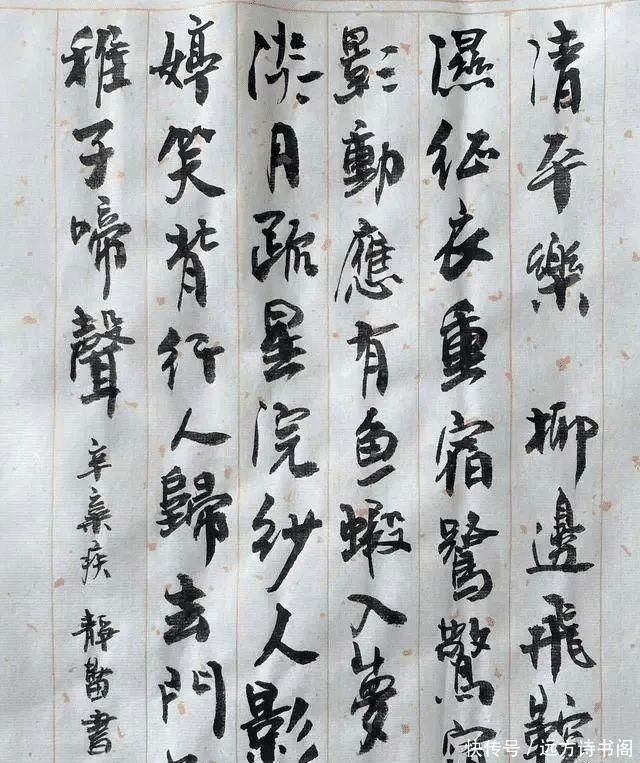 清平樂 柳邊飛鞚
濕征衣重宿鷺驚
影動應有鱼蝦入夢
淡月疏星浣紗人影
婷笑背行人歸去門
稚子啼聲 辛棄疾 靜 書
快传号/远方诗书阁